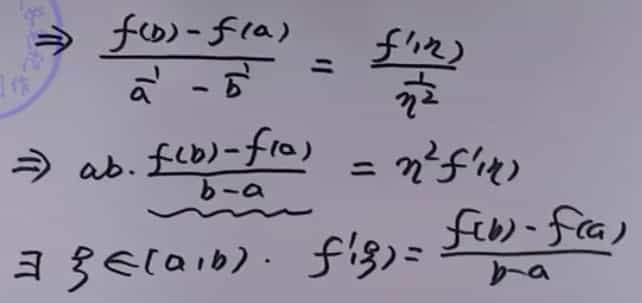 ⇒ (f(b) - f(a)) / (1/a - 1/b) = f'(η) / (1/η²)
⇒ ab · (f(b) - f(a)) / (b - a) = η² f'(η)
∃ ξ ∈ (a, b) . f'(ξ) = (f(b) - f(a)) / (b - a)